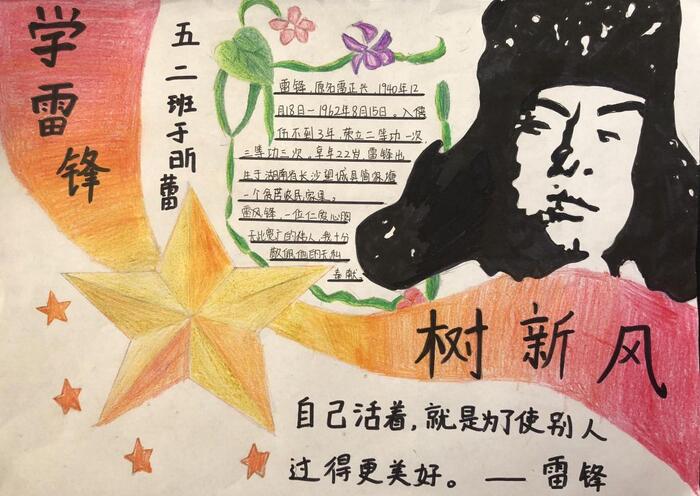 学雷锋
五二班于昕蕾
雷锋,原名雷正兴,1940年12
月18日-1962年8月15日。入伍
不到3年,荣立二等功一次,
三等功三次。享年22岁,雷锋出
生于湖南省长沙望城县简家塘
一个贫苦农民家里。
雷锋,一位仁爱心胸
无比宽广的伟人,我十分
敬佩他的无私
奉献。
树新风
自己活着,就是为了使别人
过得更美好。—雷锋